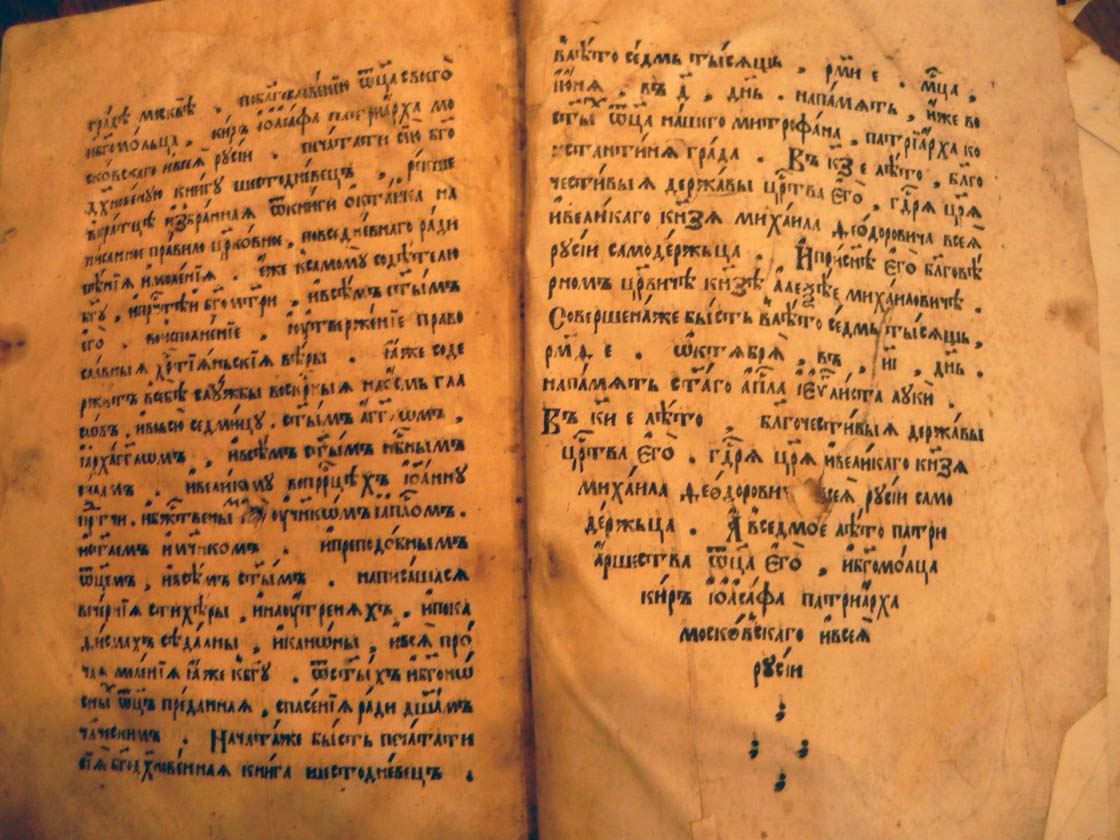 гра́дѣ москвѣ̀ , поблгⷭ҇ове́нїю ѿц҃а своего̀
и҆бг҃омо́льца , ки́ръ і҆ѡаса́фа патрїа́рха мо
ско́вскаго и҆всеѧ̀ русі́и . печа́тати сїю̀ бг҃о
дх҃нове́ную кни́гу шестодне́вецъ , ре́кше
вкра́тцѣ и҆збра́нная ѿкни́ги о҆кта́ика на
писанное пра́вило цр҃ко́вное , повседне́внаго ра́ди
пѣ́нїя и҆моле́нїя . е҆́же ксамому̀ содѣ́телю
бг҃у , и҆прⷱ҇тѣи бг҃ома́три , и҆всѣ́мъ ст҃ы́мъ
е҆го̀ . воисполне́нїе , и҆утвержде́нїе право
сла́вныя хрⷭ҇тїя́ньскїя вѣ́ры . ꙗ҆́же соде
ржи́тъ всебѣ̀ слу́жбы воскрⷭ҇ныя нао́смь гла
со́въ , и҆вовсю̀ седми́цу . ст҃ы́мъ а҆́гг҃ломъ ,
і҆а҆рха́гг҃ломъ , и҆всѣ́мъ ст҃ы́мъ нб҃нымъ
си́ламъ . и҆вели́кому впррⷪ҇цѣхъ і҆ѡа́нну
прⷣте́чи . и҆бж҃е́ственымъ оу҆чн҃ико́мъ і҆а҆пⷭ҇ломъ .
ѿц҃е́мъ , и҆всѣ́мъ ст҃ы́мъ . написа́шася
вече́рнїя стихѣ́ры , и҆нао҆у҆́треняхъ , и҆пока
ѳи́смахъ сѣда́лны , и҆кано́ны , и҆всѧ̀ про́
чая моле́нїя ꙗ҆́же кбг҃у . ѿст҃ы́хъ и҆бг҃оно́
сны̀ ѿц҃ъ пре́данная , спасе́нїя ра́ди дш҃а́мъ
чл҃ческимъ . Нача́таже бы́сть печа́тати
сїя̀ бг҃одх҃нове́нная кни́га шестодне́вецъ .
влѣ́то се́дмь ты́сящь , рм҃и е . мц҃а ,
і҆ю́нія , въ д҃ , дн҃ь . напа́мять , и҆́же во
ст҃ы́хъ ѿц҃а на́шего митрофа́на , патрїа́рха ко
нстянти́ня гра́да . Въ кз҃ е лѣ́то , бл҃го
чести́выя держа́вы црⷭ҇тва е҆гѡ̀ , гдⷭ҇ря цр҃я
и҆вели́каго кн҃зя миха́ила ѳео́доровича всея̀
русі́и самоде́ржьца . И҆присн҃ѣ е҆го̀ бл҃говѣ́
рномъ цр҃ви́чѣ кн҃зѣ а҆леѯѣ́е миха́иловичѣ .
Совершена́же бы́сть влѣ́то се́дмь ты́сящь ,
рм҃д е . о҆ктября̀ , въ , и҃і , дн҃ь .
напа́мять ст҃а́го а҆пⷭ҇ла і҆е҆ѵⷢ҇ли́ста лукѝ .
Въ ки҃ е лѣ́то , бл҃гочести́выя держа́вы
црⷭ҇тва е҆гѡ̀ . гдⷭ҇ря цр҃я и҆вели́каго кн҃зя
миха́ила ѳео́доровича всея̀ русі́и само
де́ржьца . А҆ вседмо́е лѣ́то патри
а́ршества ѿц҃а е҆го̀ , и҆бг҃омо́лца
ки́ръ і҆ѡаса́фа патриа́рха
моско́вскаго и҆всея̀
русі́и